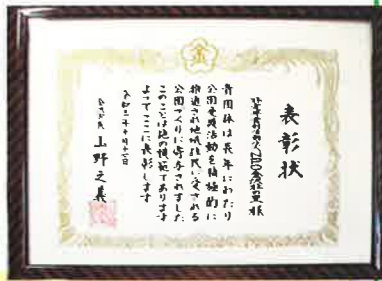 金
表彰状
貴団体は長年にわたり
公園愛護活動を積極的に
推進され地域住民に愛される
公園づくりに寄与されました
このことは他の模範であります
よってここに表彰します
山野之義